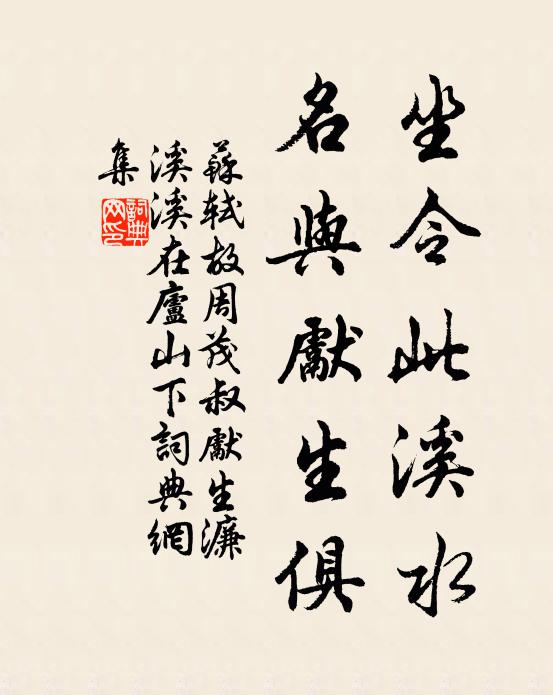 坐令此溪水
名與獻生俱
蘇軾故周茂叔獻生濂
溪溪在廬山下詞典網
集
詞典
网印